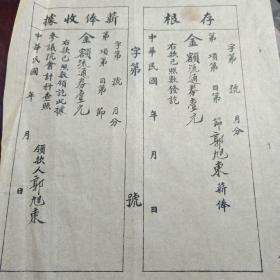 存根
字第 號 月分
第 項第 目第 節 郭旭東 薪俸
金額流通券壹元
右款已照數發訖
中華民國 年 月 日
字第 號
薪俸收據
字第 號 月分
第 項第 目第 節
金額流通券壹元
右款已照數領訖此據
參議院會計科查照
領款人 郭旭東
中華民國 年 月 日